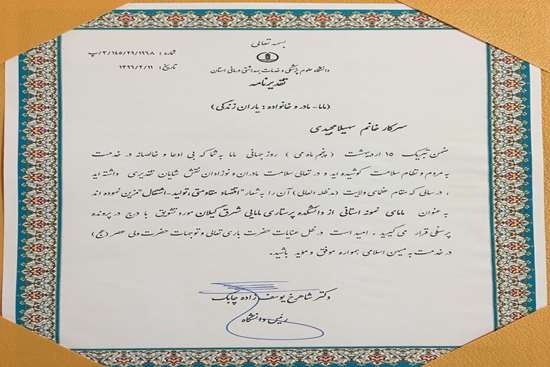 بسمه تعالی
شماره : ۳/۱۴۵/۲۹/۱۹۶۸/پ
تاریخ : ۱۳۹۶/۲/۱۱
دانشگاه علوم پزشکی و خدمات بهداشتی درمانی استان
تقدیرنامه
(ماما - مادر و خانواده : یاران زندگی)
سرکار خانم سهیلا مجیدی
ضمن تبریک ۱۵ اردیبهشت (پنجم ماه می) روز جهانی ماما به شما که بی ادعا و خالصانه در خدمت
به مردم و نظام سلامت کوشیده اید و در تعالی سلامت مادران و نوزادان نقش شایان تقدیری داشته اید
، در سالی که مقام عظمای ولایت (مدظله العالی) آن را به شعار "اقتصاد مقاومتی، تولید-اشتغال" مزین نموده اند
به عنوان مامای نمونه استانی از دانشکده پرستاری مامایی شرق گیلان مورد تشویق با درج در پرونده
پرسنلی قرار می گیرید . امید است در ظل عنایات حضرت باری تعالی و توجهات حضرت ولی عصر (عج)
در خدمت به میهن اسلامی همواره موفق و موید باشید.
دکتر شاهرخ یوسف زاده چابک
رئیس دانشگاه